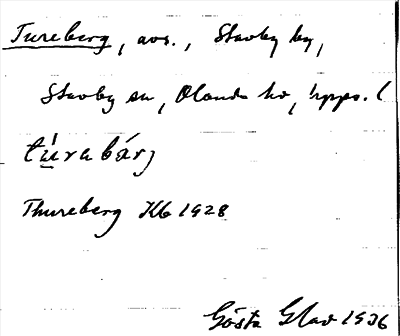 Tureberg, avs., Stavby by,
Stavby sn, Olands hd, Upps. l
tùrabárj
Thureberg Kb 1928
Gösta Glav 1936